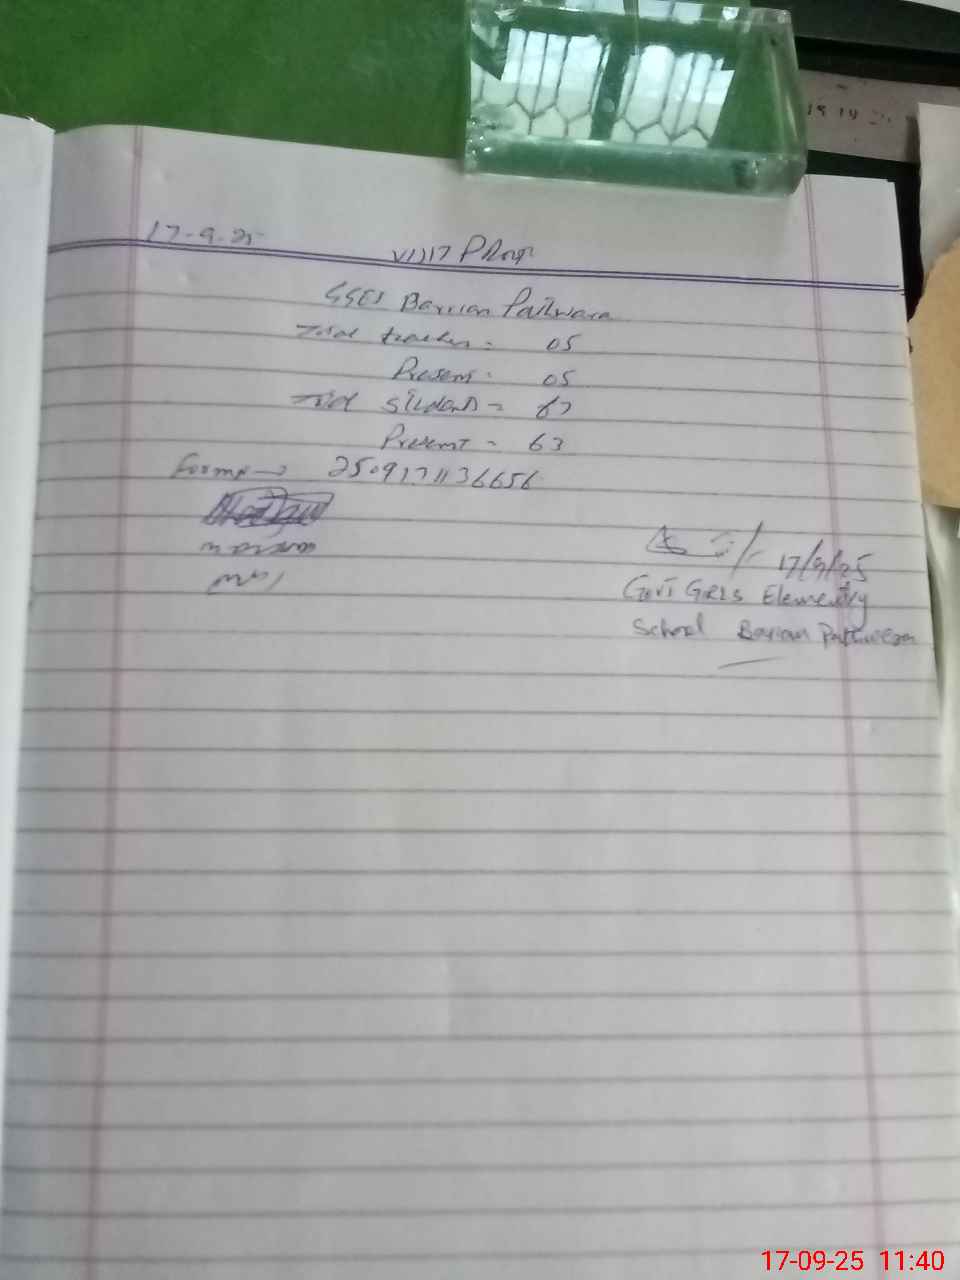 17-9-25
Visit Proof
GGES Barrian Pathwara
Total teacher = 05
Present = 05
Total students = 67
Present = 63
Form → 2509171136656
17/9/25
Govt Grls Elementry
School Barian Pathwara
17-09-25 11:40